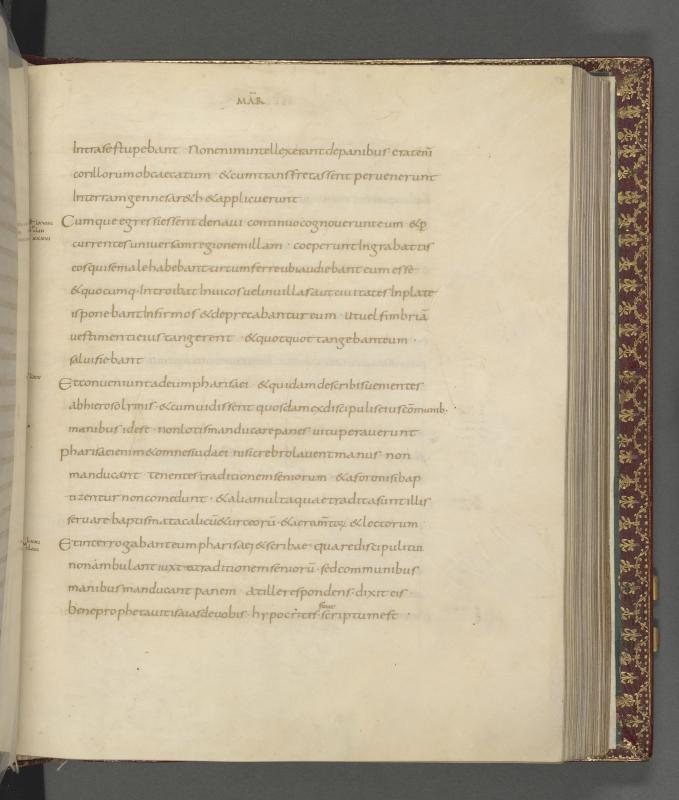 MAR
Intra se stupebant · Non enim intellexerant de panibus · erat enī
cor illorum obcaecatum · & cum transfretassent peruenerunt
In terram gennesar&h & applicuerunt
Cumque egressi essent de naui continuo cognouerunt eum · & p̄
currentes uniuersam regionem illam · coeperunt In grabattis
eos qui se male habebant circumferre ubi audiebant eum esse
& quocumq· Introibat In uicos uel in uillas aut ciuitates In plate
is ponebant Infirmos & deprecabantur eum · ut uel fimbriā
uestimenti eius tangerent · & quotquot tangebant eum ·
salui fiebant
Et conueniunt ad eum pharisaei · & quidam de scribis uenientes
ab hierosolymis · & cum uidissent quosdam ex discipulis eius cōmunib·
manibus id est · non lotis manducare panes uituperauerunt
pharisaei enim & omnes iudaei nisi crebro lauent manus non
manducant tenentes traditionem seniorum · & a foro nisi bap
tizentur non comedunt · & alia multa quae tradita sunt illis
seruare baptismata calicū & urceorū · & aeramtoꝝ & lectorum
Et interrogabant eum pharisaei & scribae quare discipuli tui
non ambulant iuxta traditionem seniorū · sed communibus
manibus manducant panem at ille respondens · dixit eis ·
bene prophetauit isaias de uobis · hypocritis · sicut scriptum est ·